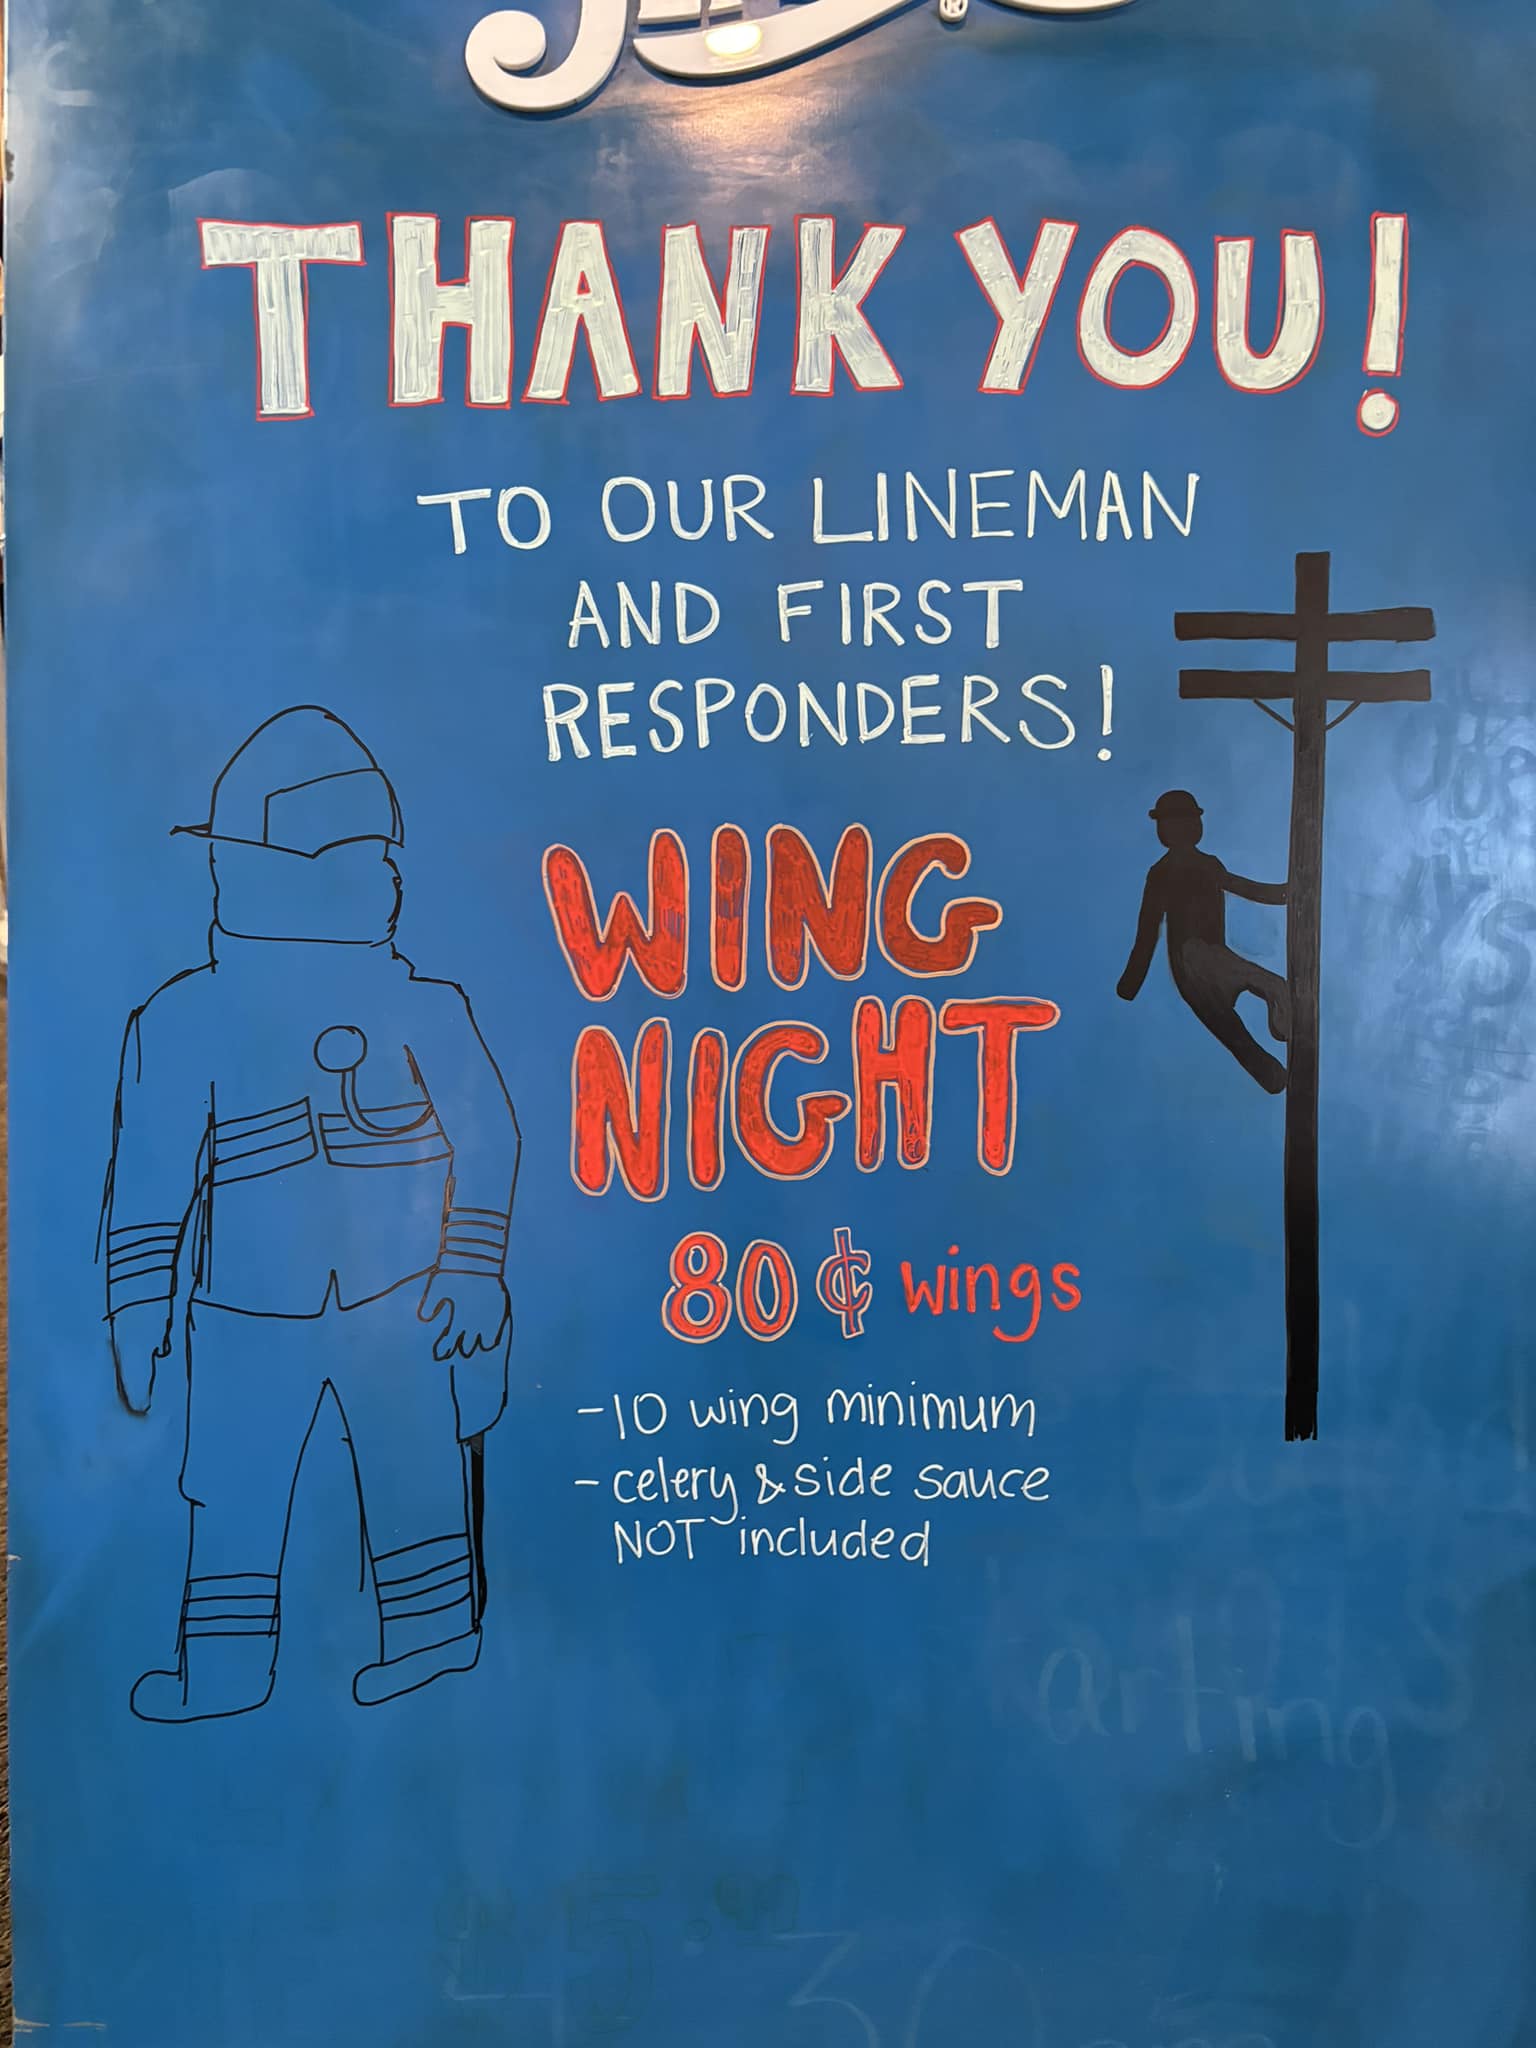 THANK YOU!
TO OUR LINEMAN
AND FIRST
RESPONDERS!
WING
NIGHT
80¢ wings
-10 wing minimum
- celery & side sauce
NOT included
arting